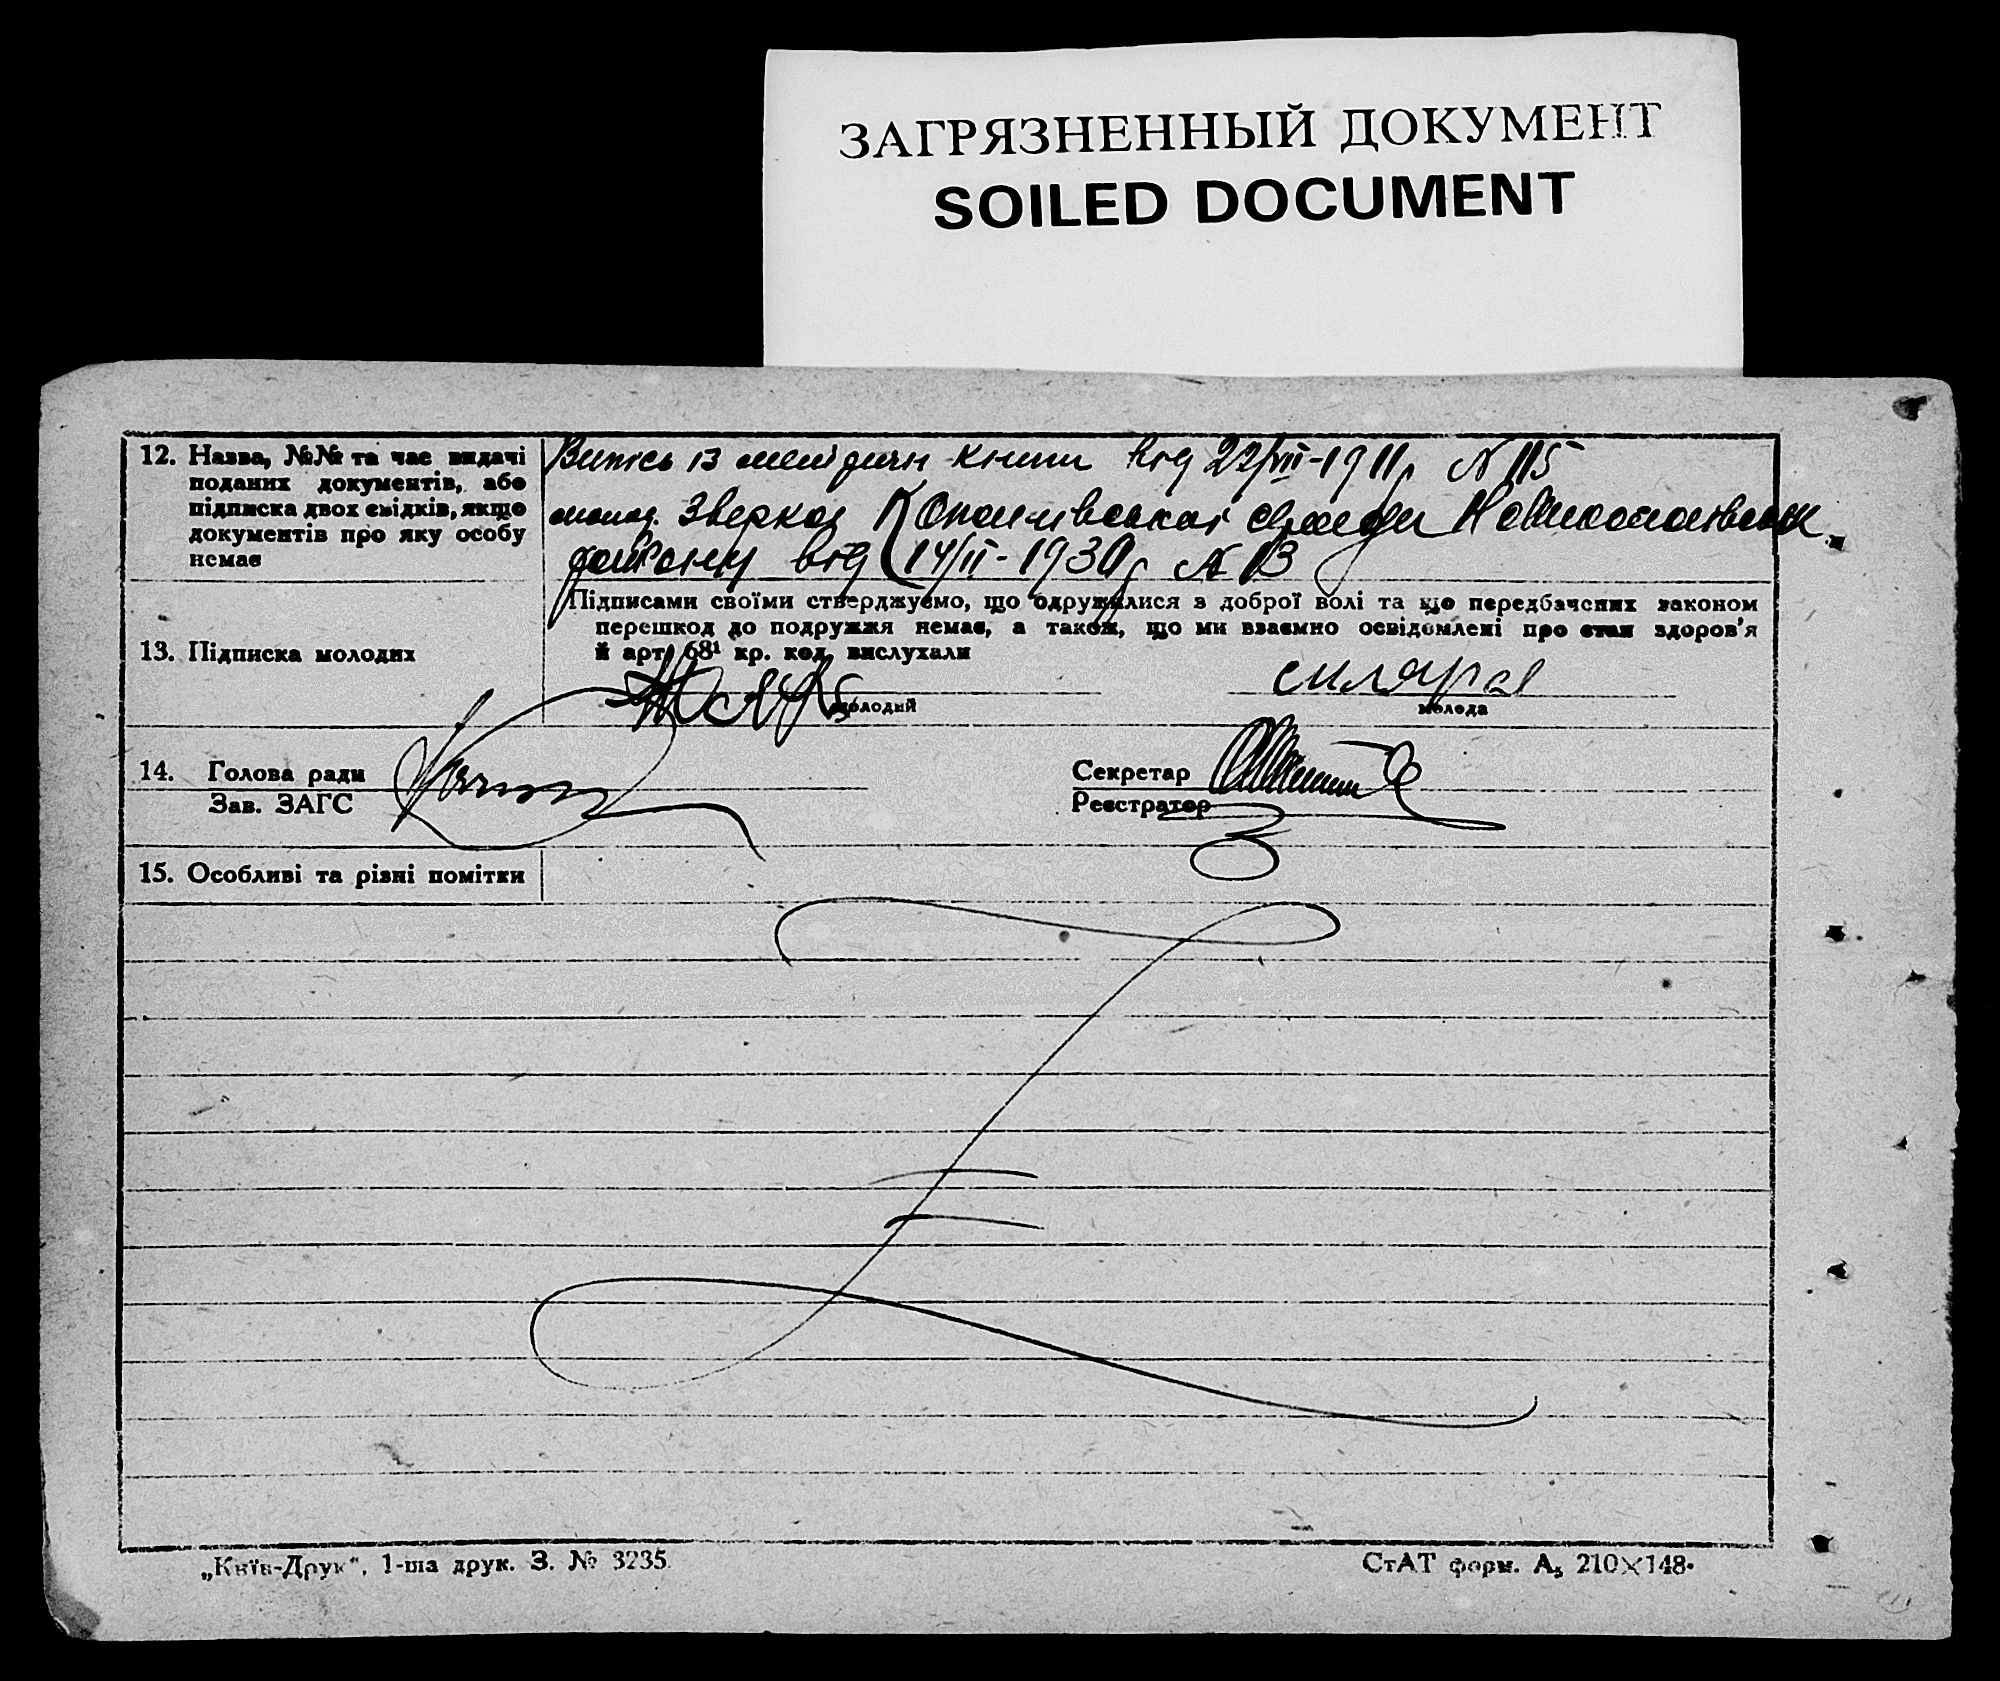 ЗАГРЯЗНЕННЫЙ ДОКУМЕНТ
SOILED DOCUMENT
12. Назва, №№ та час видачі
поданих документів, або
підписка двох свідків, якщо
документів про яку особу
немає
Випісь із книги від 27/VIII-1911 р. N 115
району від 14/II-1930 р N 13
Підписами своїми стверджуємо, що одружилися з доброї волі та що передбачених законом
перешкод до подружжя немає, а також, що ми взаємно освідомлені про стан здоров'я
й арт. 68¹ кр. код. вислухали
13. Підписка молодих
молодий
молода
14. Голова ради
Зав. ЗАГС
Секретар
Реєстратор
15. Особливі та різні помітки
„Київ-Друк", 1-ша друк. З. № 3235.
СтАТ форм. А₅ 210×148.